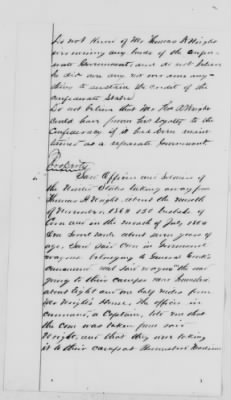 Do not Know of Mr Thomas H Wright
ever owning any bonds of the Confede-
rate Government, and do not believe
he did or any one even any-
thing to sustain the credit of the
Confederate States
Do not believe that Mr Tho. H Wright
could have proven his loyalty to the
Confederacy if it had been main-
tained as a separate Government
Property
Saw Officers and Soldiers of
the United States taking away from
Thomas H Wright, about the month
of November, 1863 150 bushels of
Corn and in the month of July 1864
One Sorrel Mule about seven years of
age. Saw said Corn in Government
wagons belonging to General Crook's
command and said wagons then were
going to their camps near Huntsville
about eight and one half miles from
Mr Wright's House, the officer in
command, a Captain, told me that
the Corn was taken from said
Wright, and that they were taking
it to their camps at Brownsboro Madison